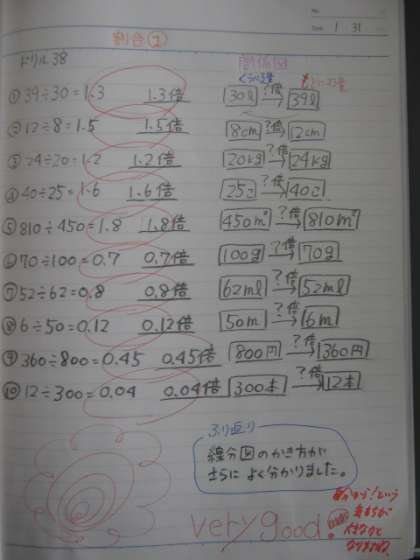 No.
Date 1 ・ 31 ・
割合①
ドリル38
関係図
くらべる量
もとにする量
① 39÷30=1.3 1.3倍 30ℓ ?倍 39ℓ
② 12÷8=1.5 1.5倍 8cm ?倍 12cm
③ 24÷20=1.2 1.2倍 20kg ?倍 24kg
④ 40÷25=1.6 1.6倍 25こ ?倍 40こ
⑤ 810÷450=1.8 1.8倍 450m² ?倍 810m²
⑥ 70÷100=0.7 0.7倍 100g ?倍 70g
⑦ 52÷62=0.8 0.8倍 62mℓ ?倍 52mℓ
⑧ 6÷50=0.12 0.12倍 50m ?倍 6m
⑨ 360÷800=0.45 0.45倍 800円 ?倍 360円
⑩ 12÷300=0.04 0.04倍 300本 ?倍 12本
ふり返り
線分図のかき方が
さらによく分かりました。
very good.
分かる!という
気もちが
大きなと